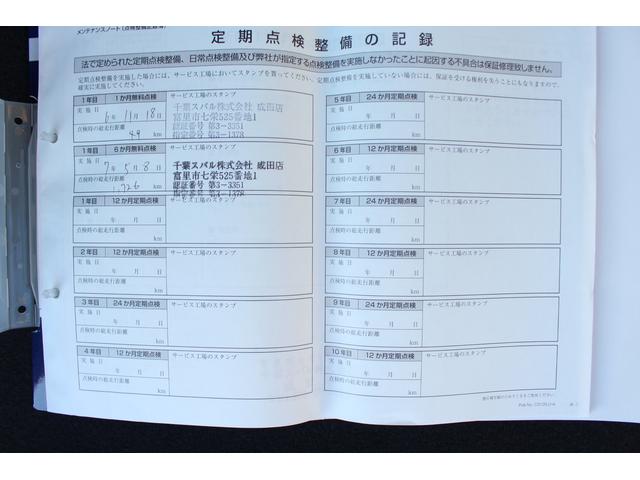 メンテナンスノート(点検整備記録簿)
定期点検整備の記録
法で定められた定期点検整備、日常点検整備及び弊社が指定する点検整備を実施しなかったことに起因する不具合は保証修理致しません。
定期点検整備を実施した場合には、サービス工場においてスタンプを貰ってください。定期点検整備を実施していない場合には、保証を受ける権利を失うことにもなりますので、
確実に実施してください。
1年目 1か月無料点検
実施日
6年11月18日
点検時の総走行距離
49 km
千葉スバル株式会社 成田店
富里市七栄525番地1
認証番号 第3-3351
指定番号 第3-1378
1年目 6か月無料点検
実施日
7年5月8日
点検時の総走行距離
1,726 km
千葉スバル株式会社 成田店
富里市七栄525番地1
認証番号 第3-3351
指定番号 第3-1378
1年目 12か月定期点検 サービス工場のスタンプ
実施日
年 月 日
点検時の総走行距離
km
2年目 12か月定期点検 サービス工場のスタンプ
実施日
年 月 日
点検時の総走行距離
km
3年目 24か月定期点検 サービス工場のスタンプ
実施日
年 月 日
点検時の総走行距離
km
4年目 12か月定期点検 サービス工場のスタンプ
実施日
年 月 日
点検時の総走行距離
km
5年目 24か月定期点検 サービス工場のスタンプ
実施日
年 月 日
点検時の総走行距離
km
6年目 12か月定期点検 サービス工場のスタンプ
実施日
年 月 日
点検時の総走行距離
km
7年目 24か月定期点検 サービス工場のスタンプ
実施日
年 月 日
点検時の総走行距離
km
8年目 12か月定期点検 サービス工場のスタンプ
実施日
年 月 日
点検時の総走行距離
km
9年目 24か月定期点検 サービス工場のスタンプ
実施日
年 月 日
点検時の総走行距離
km
10年目 12か月定期点検 サービス工場のスタンプ
実施日
年 月 日
点検時の総走行距離
km